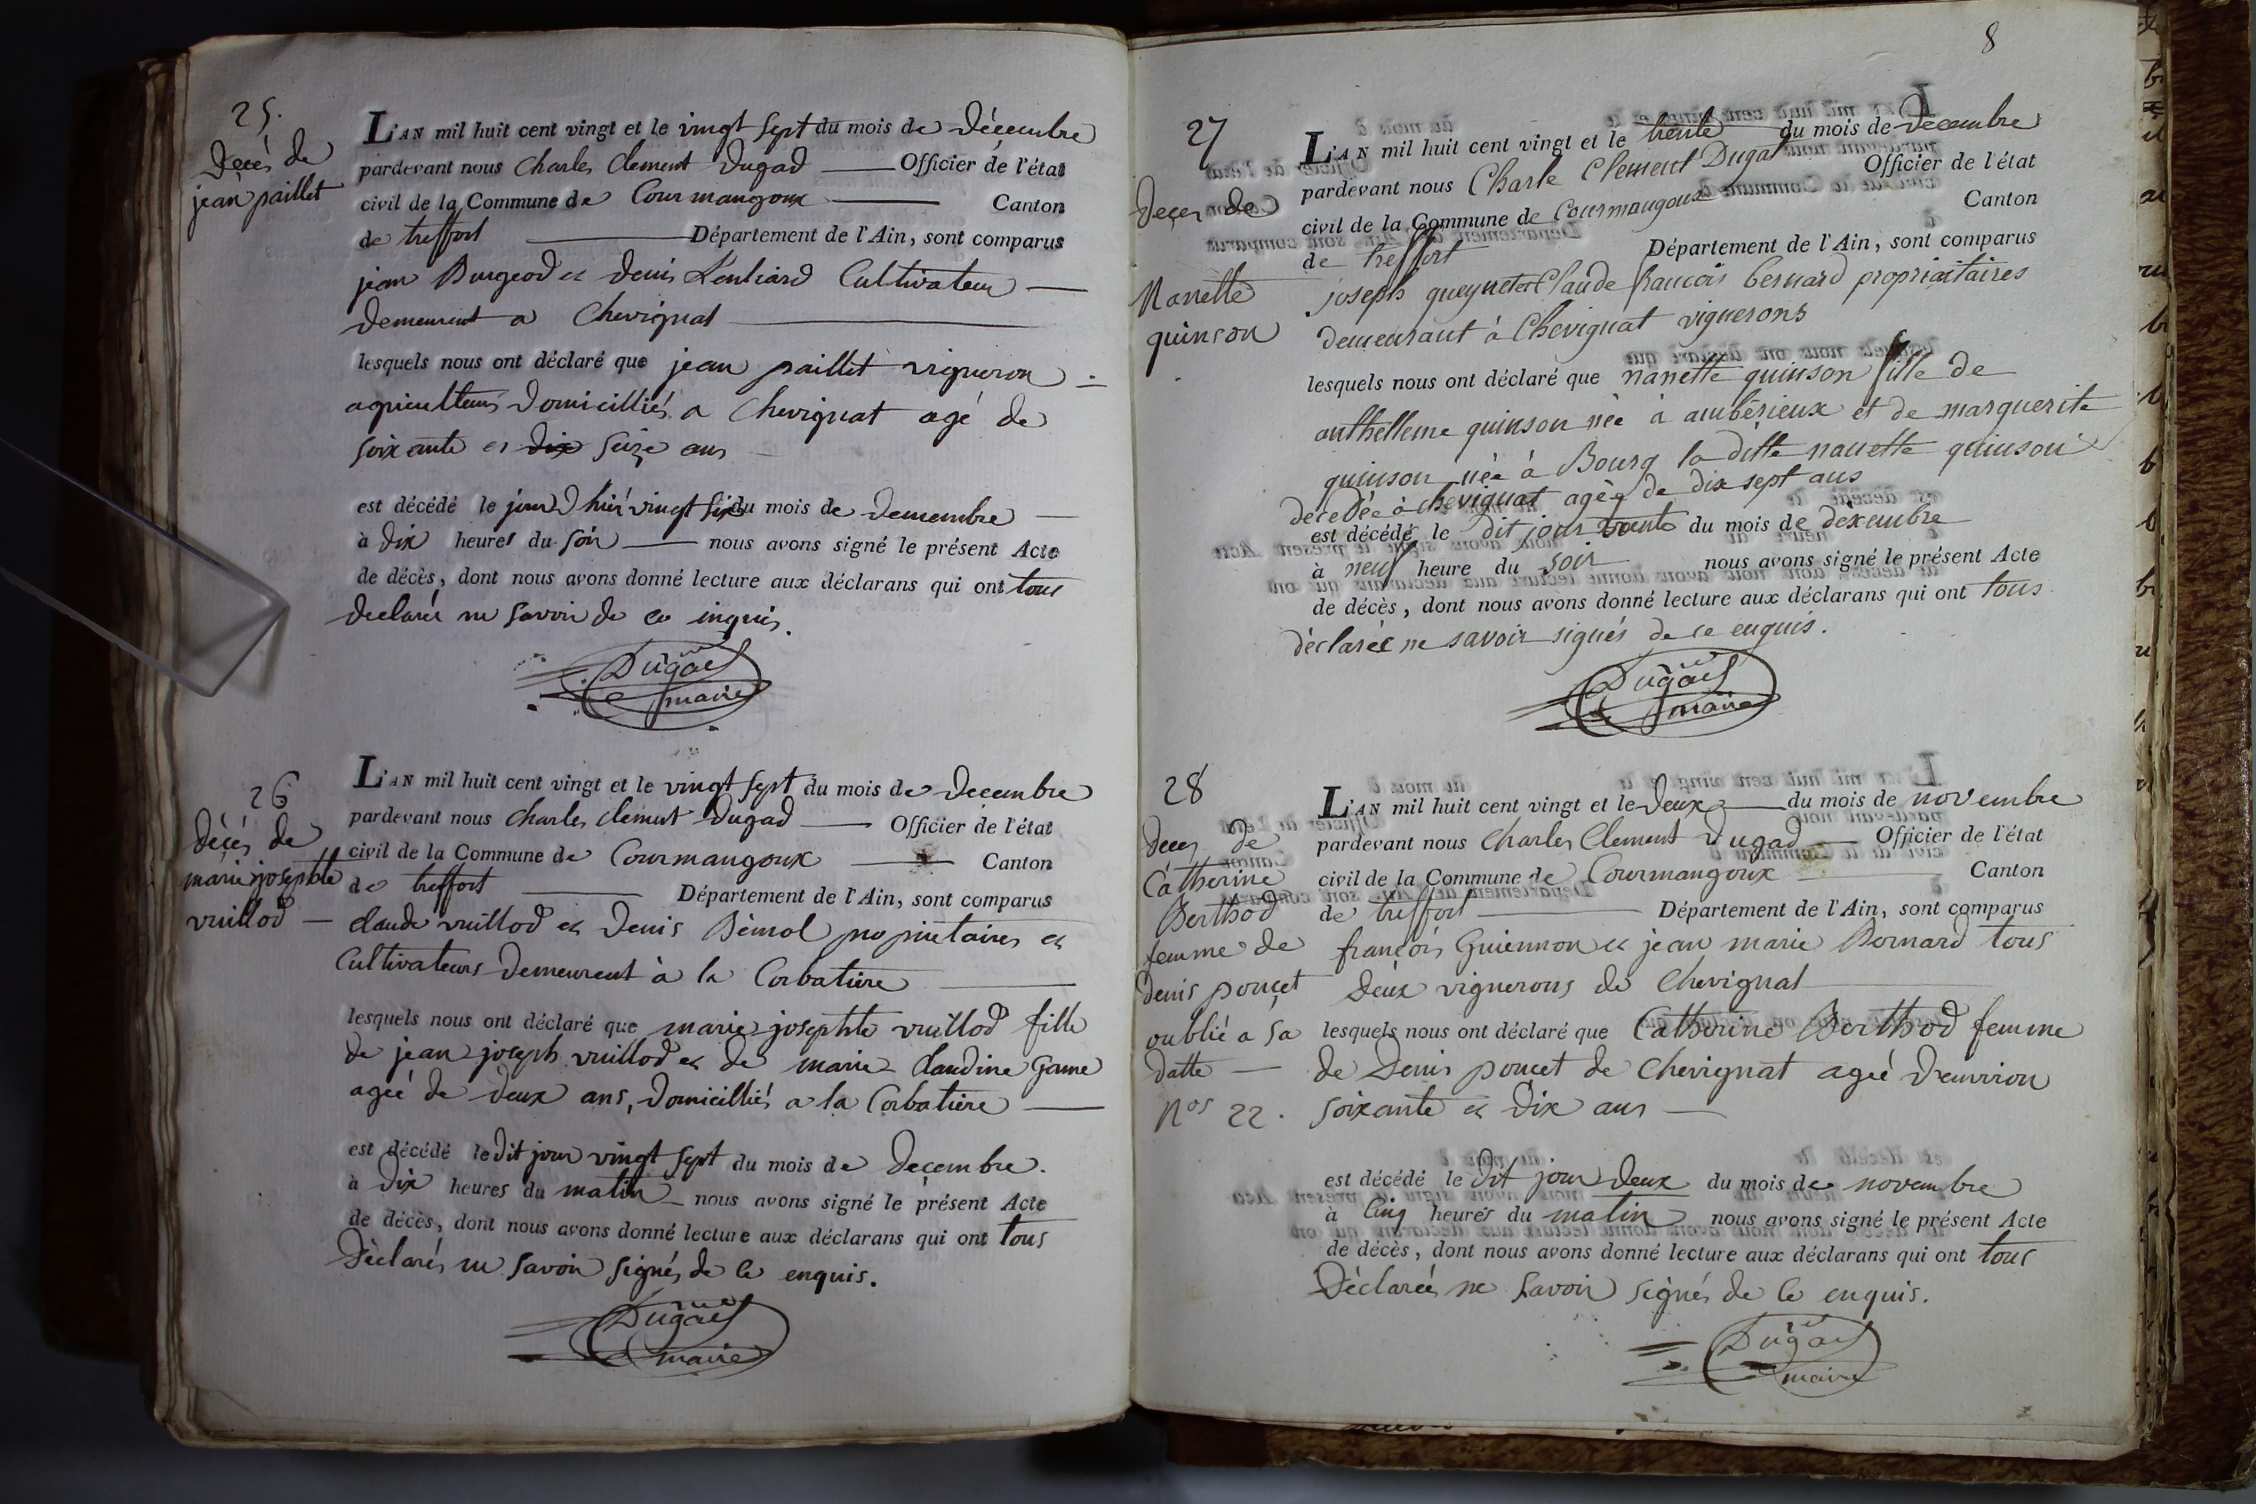 25.
Décès de
jean paillet
L'AN mil huit cent vingt et le vingt sept du mois de Décembre
pardevant nous Charles Clement Dugad Officier de l'état
civil de la Commune de Courmangoux Canton
de treffort Département de l'Ain, sont comparus
jean Burgeod et Denis Cultivateur
Demeurent a Chevignat
lesquels nous ont déclaré que jean paillet vigneron
agriculteur Domicilliés a Chevignat agé de
soixante et dix seize ans
est décédé le jour D'hier vingt six du mois de Demembre
à Dix heures du soir nous avons signé le présent Acte
de décès, dont nous avons donné lecture aux déclarans qui ont tous
declarés ne savoir de ce inquis.
Dugad
maire
26
Décés de
marie josephte
vuillod
L'AN mil huit cent vingt et le vingt sept du mois de Decembre
pardevant nous Charles Clement Dugad Officier de l'état
civil de la Commune de Courmangoux Canton
de treffort Département de l'Ain, sont comparus
claude vuillod et Denis Bémol propriétaires et
Cultivateurs Demeurent à la Corbatière
lesquels nous ont déclaré que marie josephte vuillod fille
de jean joseph vuillod et de marie Claudine Game
ageé de Deux ans, Domicilliés a la Corbatière
est décédé le dit jour vingt sept du mois de Decembre.
à Dix heures du matin nous avons signé le présent Acte
de décès, dont nous avons donné lecture aux déclarans qui ont tous
Déclarés ne savoir signés de ce enquis.
Dugad
maire
8
27
Deçes de
Nanette
quinson
L'AN mil huit cent vingt et le trente du mois de Decembre
pardevant nous Charle Clement Dugat Officier de l'état
civil de la Commune de Courmangoux Canton
de treffort Département de l'Ain, sont comparus
joseph queynet et Claude francois bernard propriaitaires
demeurant à Chevignat vignerons
lesquels nous ont déclaré que nanette quinson fille de
anthelleme quinson née à ambérieux et de marguerite
quinson née à Bourg la ditte nanette quinson
decedée à chevignat agèe de dix sept ans
est décédé le dit jour trente du mois de déxembre
à neuf heure du soir nous avons signé le présent Acte
de décès, dont nous avons donné lecture aux déclarans qui ont tous
déclarée ne savoir signés de ce enquis.
Dugad
maire
28
Deces de
Catherine
Berthod
femme de
denis ponçet
oublié a sa
datte
Nos 22.
L'AN mil huit cent vingt et le Deux du mois de novembre
pardevant nous Charles Clement Dugad Officier de l'état
civil de la Commune de Courmangoux Canton
de treffort Département de l'Ain, sont comparus
françois Guiennon et jean marie Bernard tous
Deux vignerons de Chevignat
lesquels nous ont déclaré que Catherine Berthod femme
de Denis poncet de Chevignat ageé D'environ
soixante et Dix ans
est décédé le Dit jour Deux du mois de novembre
à Cinq heures du matin nous avons signé le présent Acte
de décès, dont nous avons donné lecture aux déclarans qui ont tous
Déclareés ne Savoir signés de ce enquis.
Dugad
maire